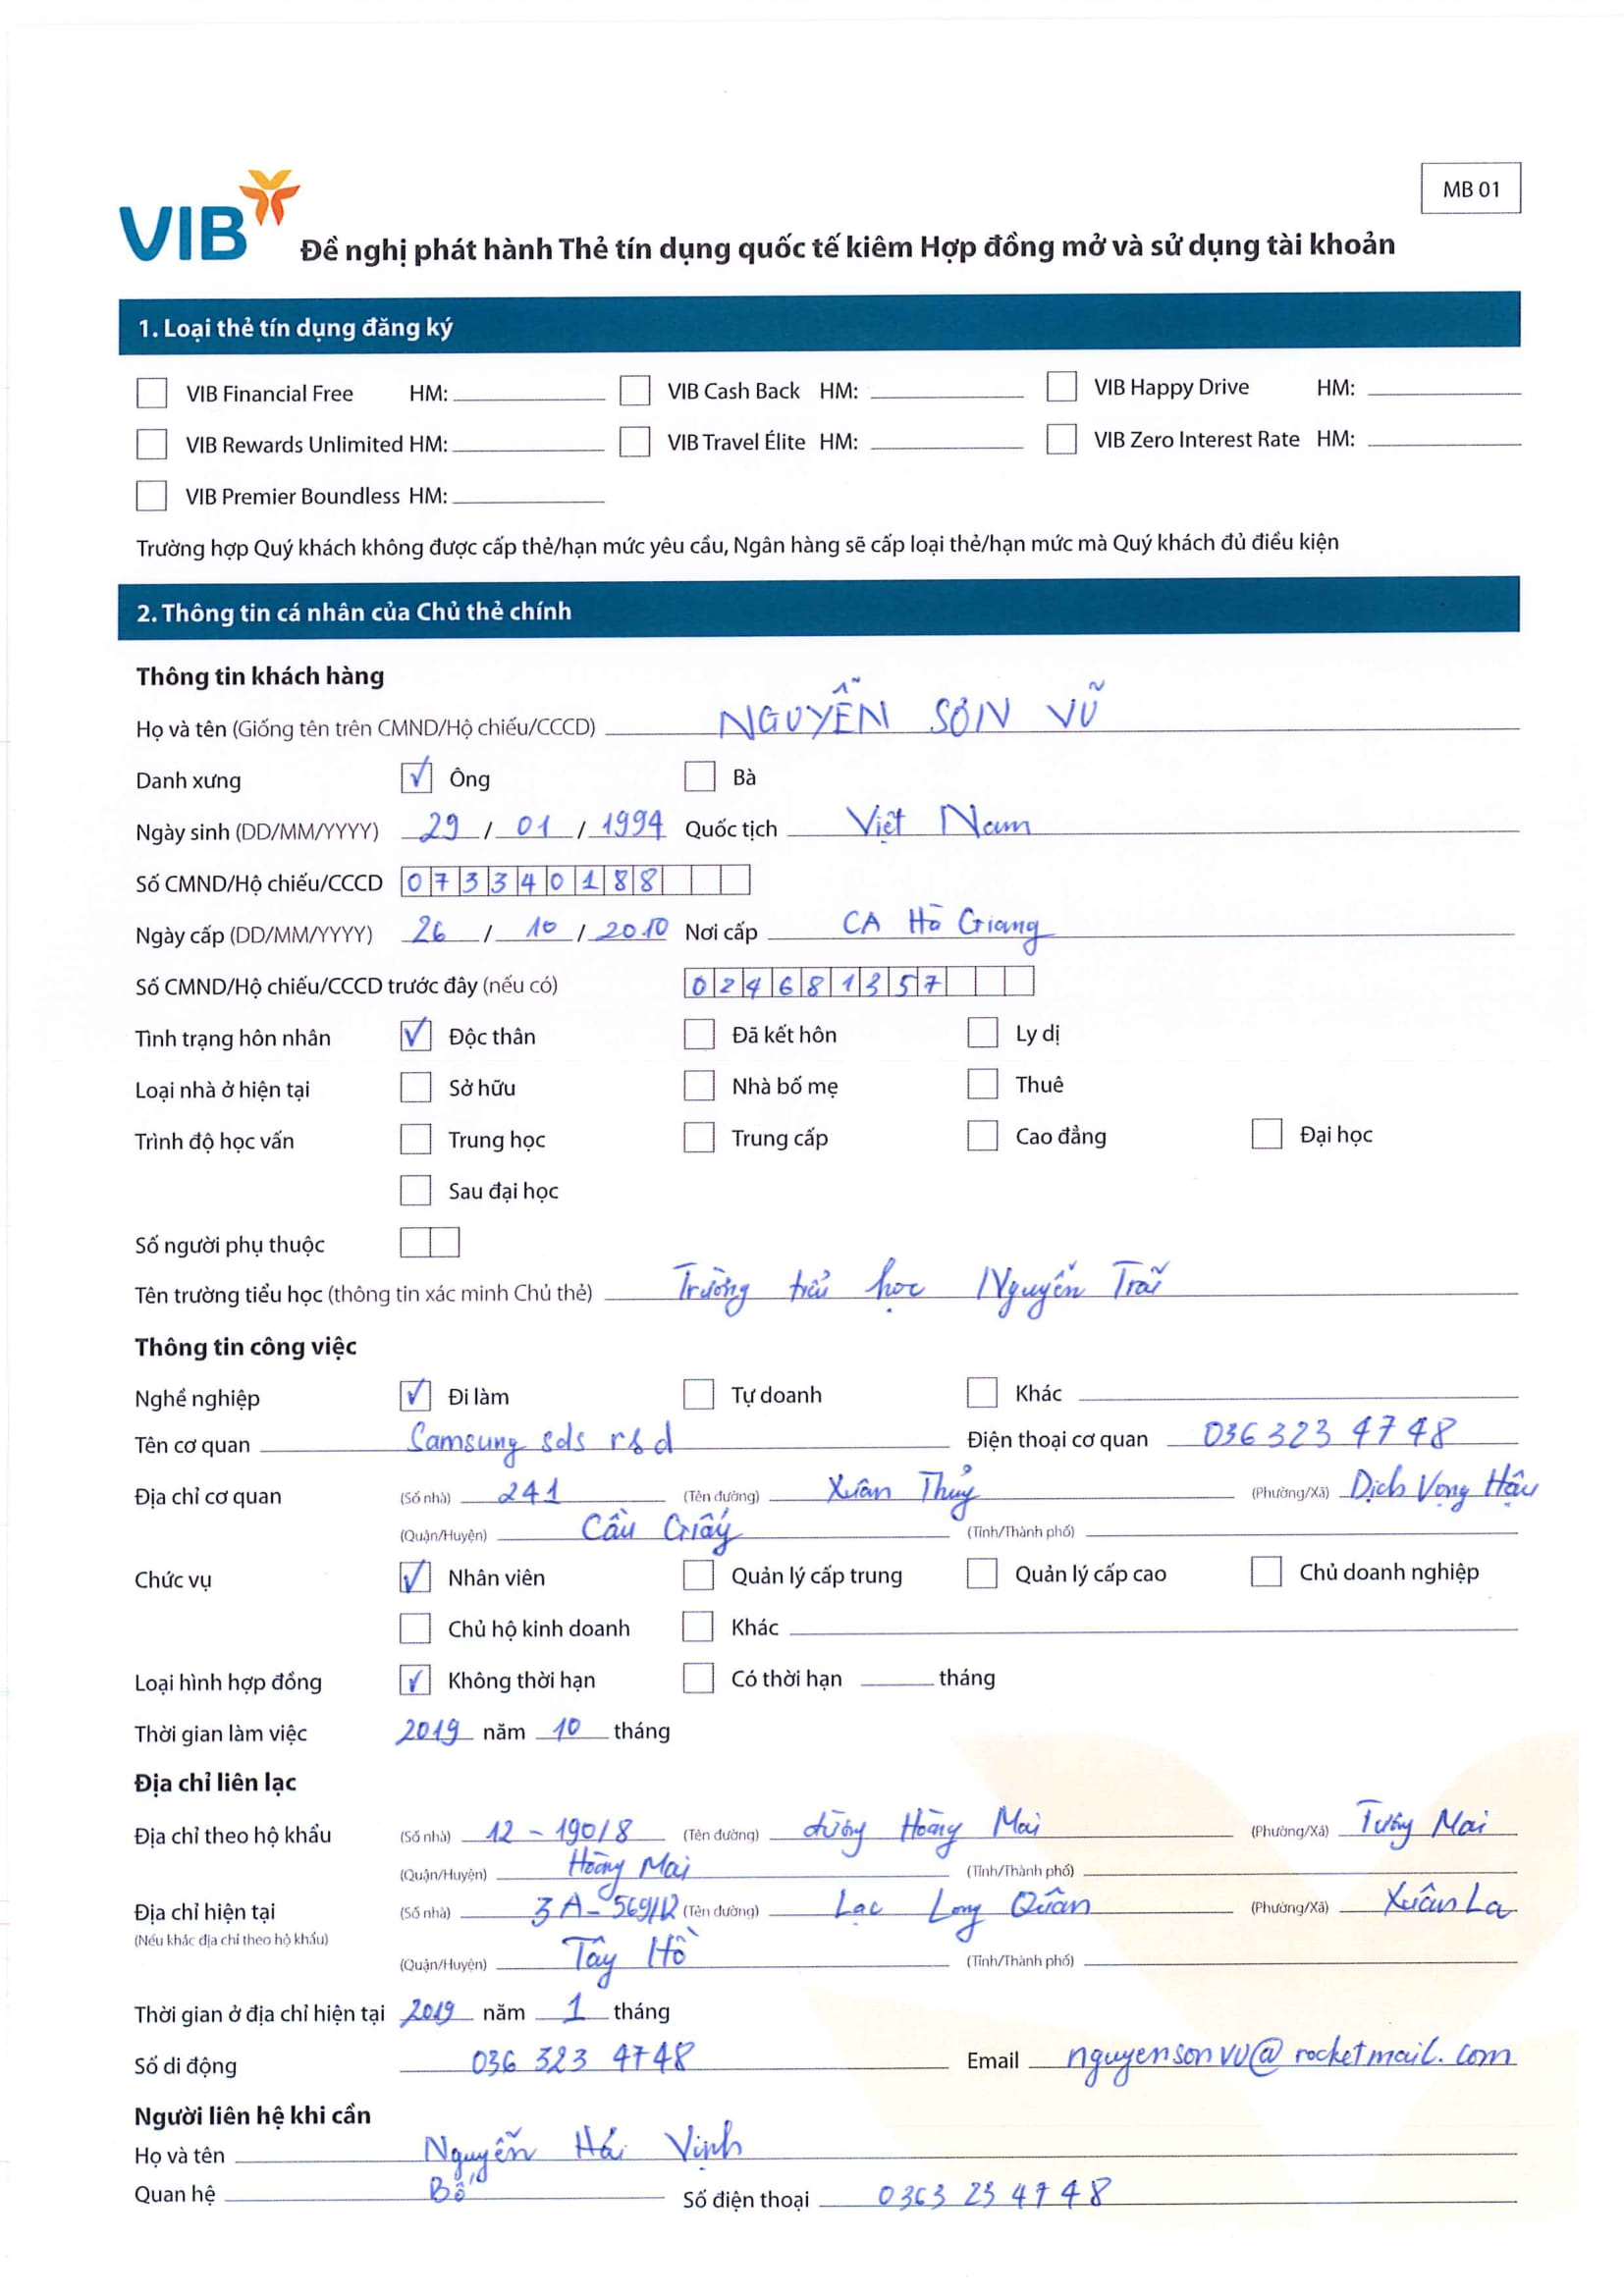 MB 01
VIB
Đề nghị phát hành Thẻ tín dụng quốc tế kiêm Hợp đồng mở và sử dụng tài khoản
1. Loại thẻ tín dụng đăng ký
VIB Financial Free HM: VIB Cash Back HM: VIB Happy Drive HM:
VIB Rewards Unlimited HM: VIB Travel Élite HM: VIB Zero Interest Rate HM:
VIB Premier Boundless HM:
Trường hợp Quý khách không được cấp thẻ/hạn mức yêu cầu, Ngân hàng sẽ cấp loại thẻ/hạn mức mà Quý khách đủ điều kiện
2. Thông tin cá nhân của Chủ thẻ chính
Thông tin khách hàng
Họ và tên (Giống tên trên CMND/Hộ chiếu/CCCD) NGUYỄN SƠN VŨ
Danh xưng Ông Bà
Ngày sinh (DD/MM/YYYY) 29 / 01 / 1994 Quốc tịch Việt Nam
Số CMND/Hộ chiếu/CCCD 073340188
Ngày cấp (DD/MM/YYYY) 26 / 10 / 2010 Nơi cấp CA Hà Giang
Số CMND/Hộ chiếu/CCCD trước đây (nếu có) 024681357
Tình trạng hôn nhân Độc thân Đã kết hôn Ly dị
Loại nhà ở hiện tại Sở hữu Nhà bố mẹ Thuê
Trình độ học vấn Trung học Trung cấp Cao đẳng Đại học
Sau đại học
Số người phụ thuộc
Tên trường tiểu học (thông tin xác minh Chủ thẻ) Trường tiểu học Nguyễn Trãi
Thông tin công việc
Nghề nghiệp Đi làm Tự doanh Khác
Tên cơ quan Samsung sds r&d Điện thoại cơ quan 036 323 4748
Địa chỉ cơ quan (Số nhà) 241 (Tên đường) Xuân Thuỷ (Phường/Xã) Dịch Vọng Hậu
(Quận/Huyện) Cầu Giấy (Tỉnh/Thành phố)
Chức vụ Nhân viên Quản lý cấp trung Quản lý cấp cao Chủ doanh nghiệp
Chủ hộ kinh doanh Khác
Loại hình hợp đồng Không thời hạn Có thời hạn tháng
Thời gian làm việc 2019 năm 10 tháng
Địa chỉ liên lạc
Địa chỉ theo hộ khẩu (Số nhà) 12 - 190/8 (Tên đường) đường Hoàng Mai (Phường/Xã) Tương Mai
(Quận/Huyện) Hoàng Mai (Tỉnh/Thành phố)
Địa chỉ hiện tại (Số nhà) 3A - 569/12 (Tên đường) Lạc Long Quân (Phường/Xã) Xuân La
(Nếu khác địa chỉ theo hộ khẩu)
(Quận/Huyện) Tây Hồ (Tỉnh/Thành phố)
Thời gian ở địa chỉ hiện tại 2019 năm 1 tháng
Số di động 036 323 4748 Email nguyensonvu@rocketmail.com
Người liên hệ khi cần
Họ và tên Nguyễn Hải Vịnh
Quan hệ Bố Số điện thoại 0363 23 4748